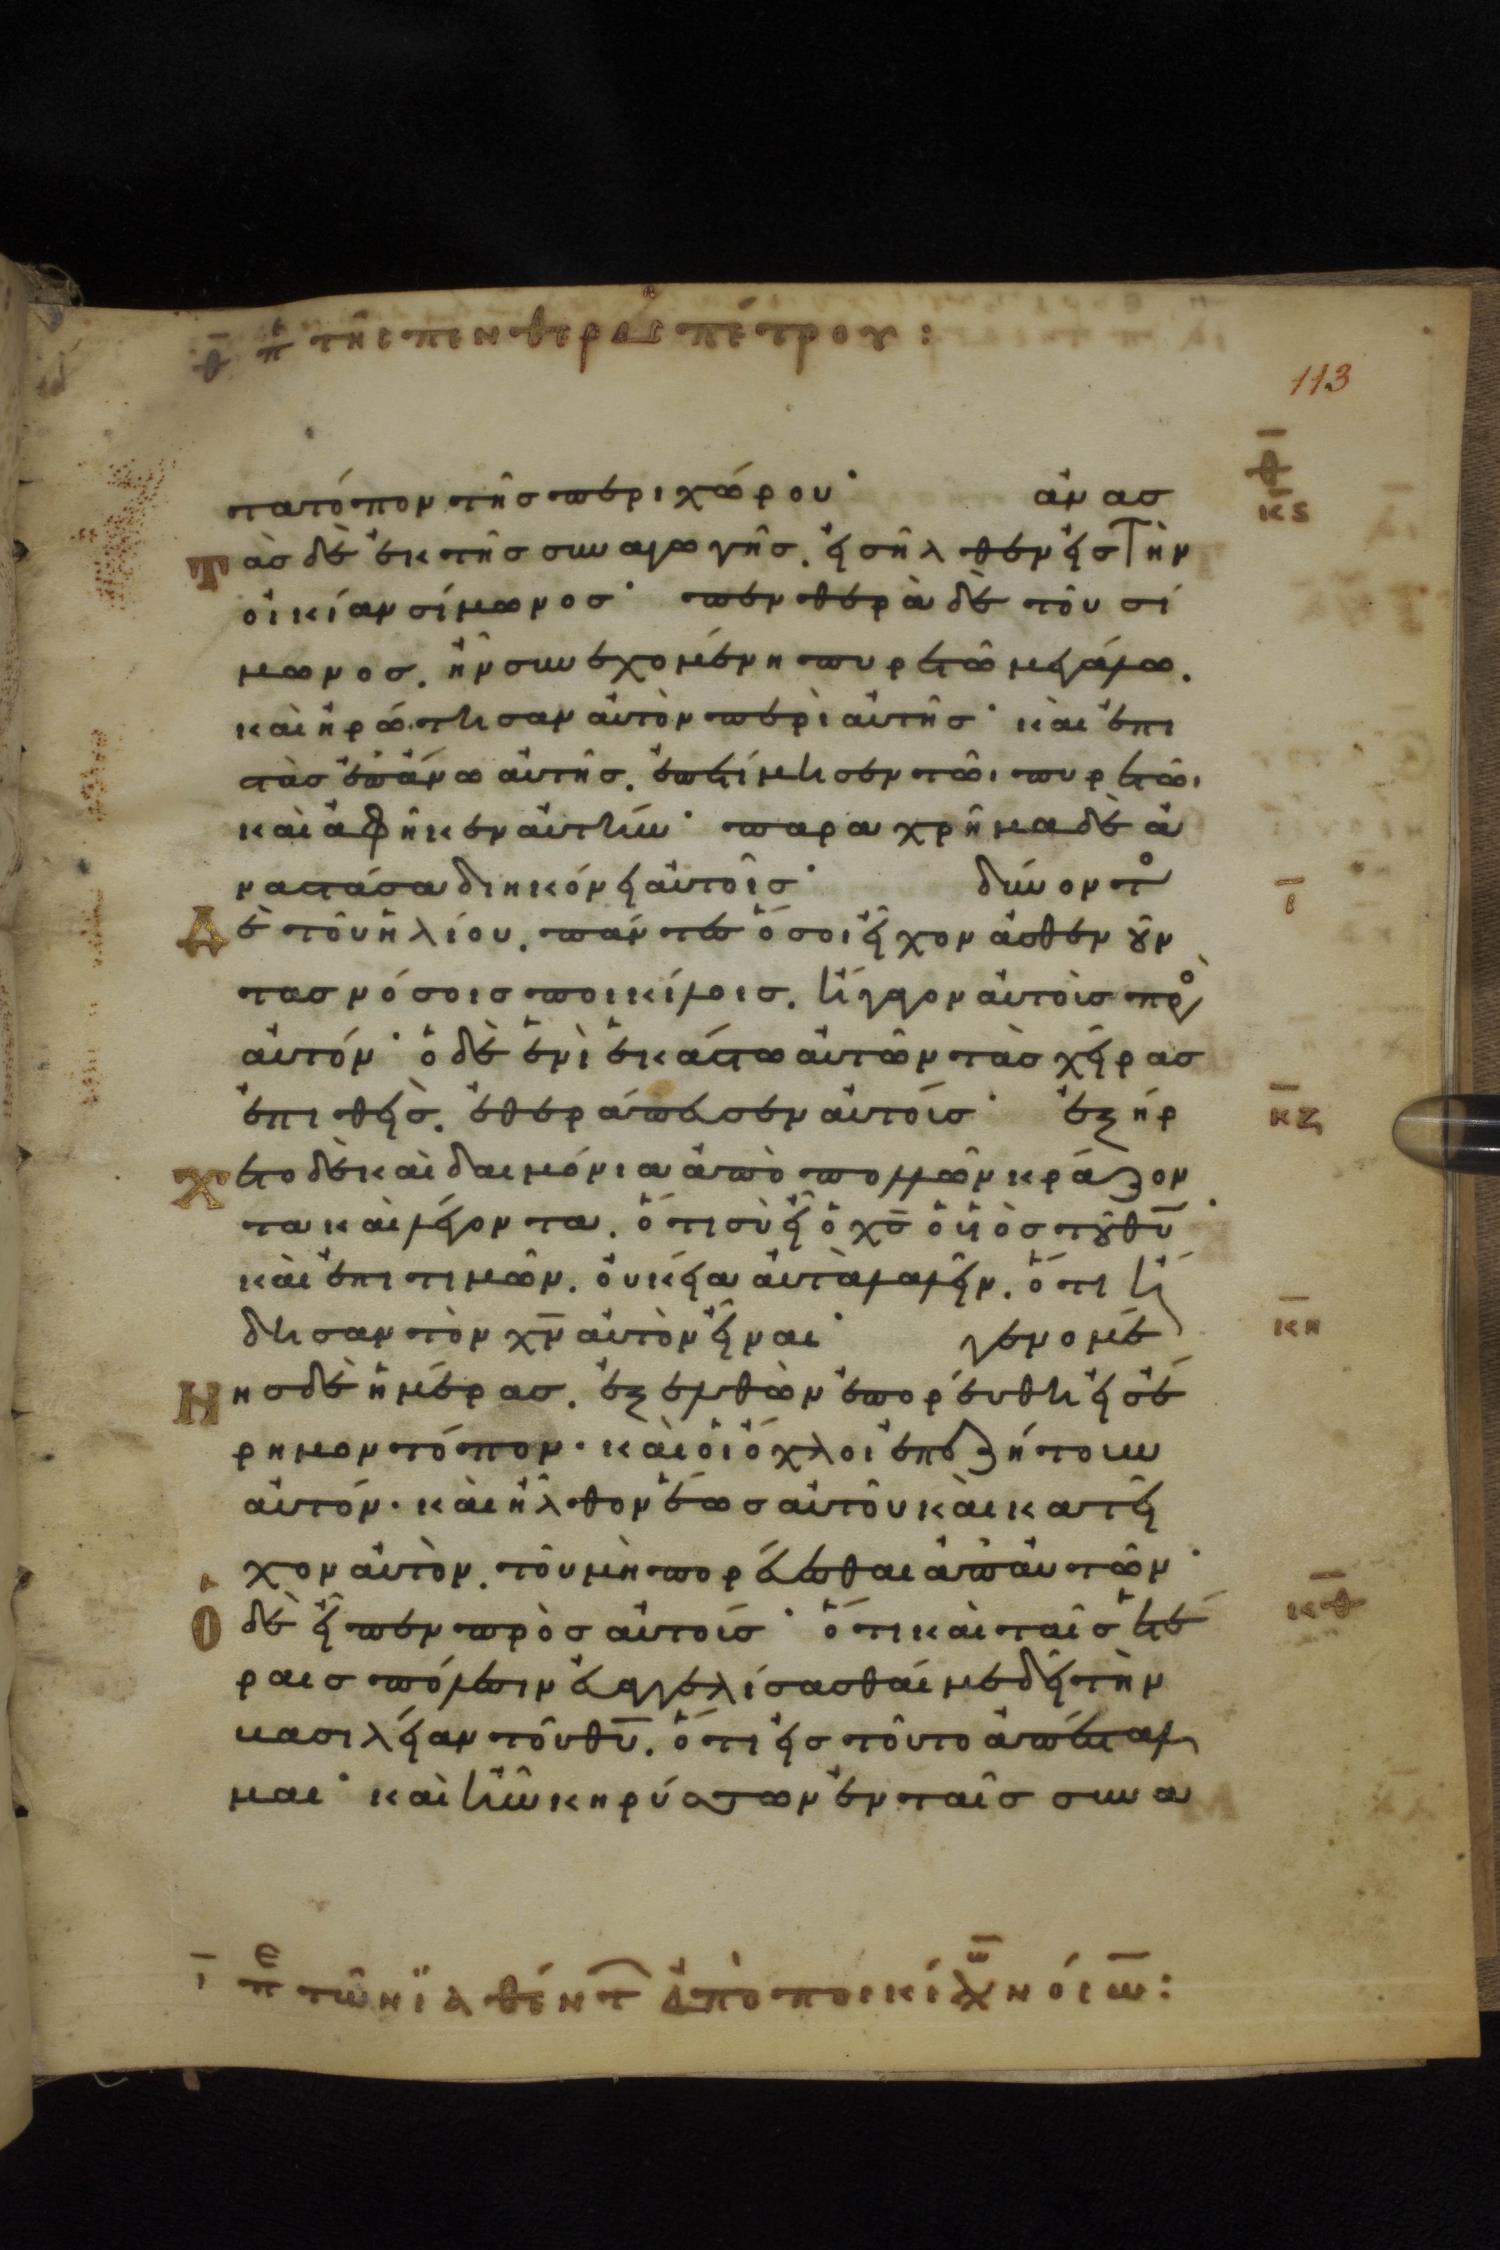 θ̅ πε τῆς πενθερᾶς πέτρου :
113
πα τόπον τῆς περιχώρου· ἀνασ
θ̅
κ̅ς̅
Τὰσ δὲ ἐκ τῆς συναγωγῆς. εἰσῆλθεν εἰς τὴν
οἰκίαν σίμωνος· πενθερὰ δὲ τοῦ σί
μωνος. ἦν συνεχομένη πυρετῶ μεγάλω.
καὶ ἠρώτησαν αὐτὸν περὶ αὐτῆς· καὶ ἐπι
στὰς ἐπάνω αὐτῆς. ἐπετίμησεν τῶι πυρετῶι
καὶ ἀφῆκεν αὐτήν· παραχρῆμα δὲ ἀ
ναστάσα διηκόνει αὐτοῖς· δύνοντο
ι̅
Δὲ τοῦ ἡλίου. πάντες ὅσοι εἶχον ἀσθενοῦν
τας νόσοις ποικίλοις. ἤγαγον αὐτοὺς πρὸς
αὐτόν· ὁ δὲ ἑνὶ ἑκάστω αὐτῶν τὰς χεῖρας
ἐπιθεὶς. ἐθεράπευσεν αὐτούς· ἐξήρ
κ̅ζ̅
Χετο δὲ καὶ δαιμόνια ἀπὸ πολλῶν κράζον
τα καὶ λέγοντα. ὅτι σὺ εἶ ὁ χ̅ς̅ ὁ υἱὸς τοῦ θ̅υ̅·
καὶ ἐπιτιμῶν. οὐκ εἴα αὐτὰ λαλεῖν. ὅτι ἤ
δησαν τὸν χ̅ν̅ αὐτὸν εἶναι· γενομέ
κ̅η̅
Ηνησ δὲ ἡμέρας. ἐξελθὼν ἐπορεύθη εἰς ἔ
ρημον τόπον· καὶ οἱ ὄχλοι ἐπεζήτουν
αὐτόν· καὶ ἦλθον ἕως αὐτοῦ καὶ κατεῖ
χον αὐτὸν. τοῦ μὴ πορεύεσθαι ἀπ' αὐτῶν·
Ὁ δὲ εἶπεν πρὸς αὐτούς· ὅτι καὶ ταῖς ἑτέ
κ̅θ̅
ραις πόλεσιν εὐαγγελίσασθαί με δεῖ τὴν
βασιλείαν τοῦ θ̅υ̅. ὅτι εἰς τοῦτο ἀπέσταλ
μαι· καὶ ἦν κηρύσσων ἐν ταῖς συνα
ι̅ πε τῶν ἰαθέντ ἀπὸ ποικίλων νόσων :